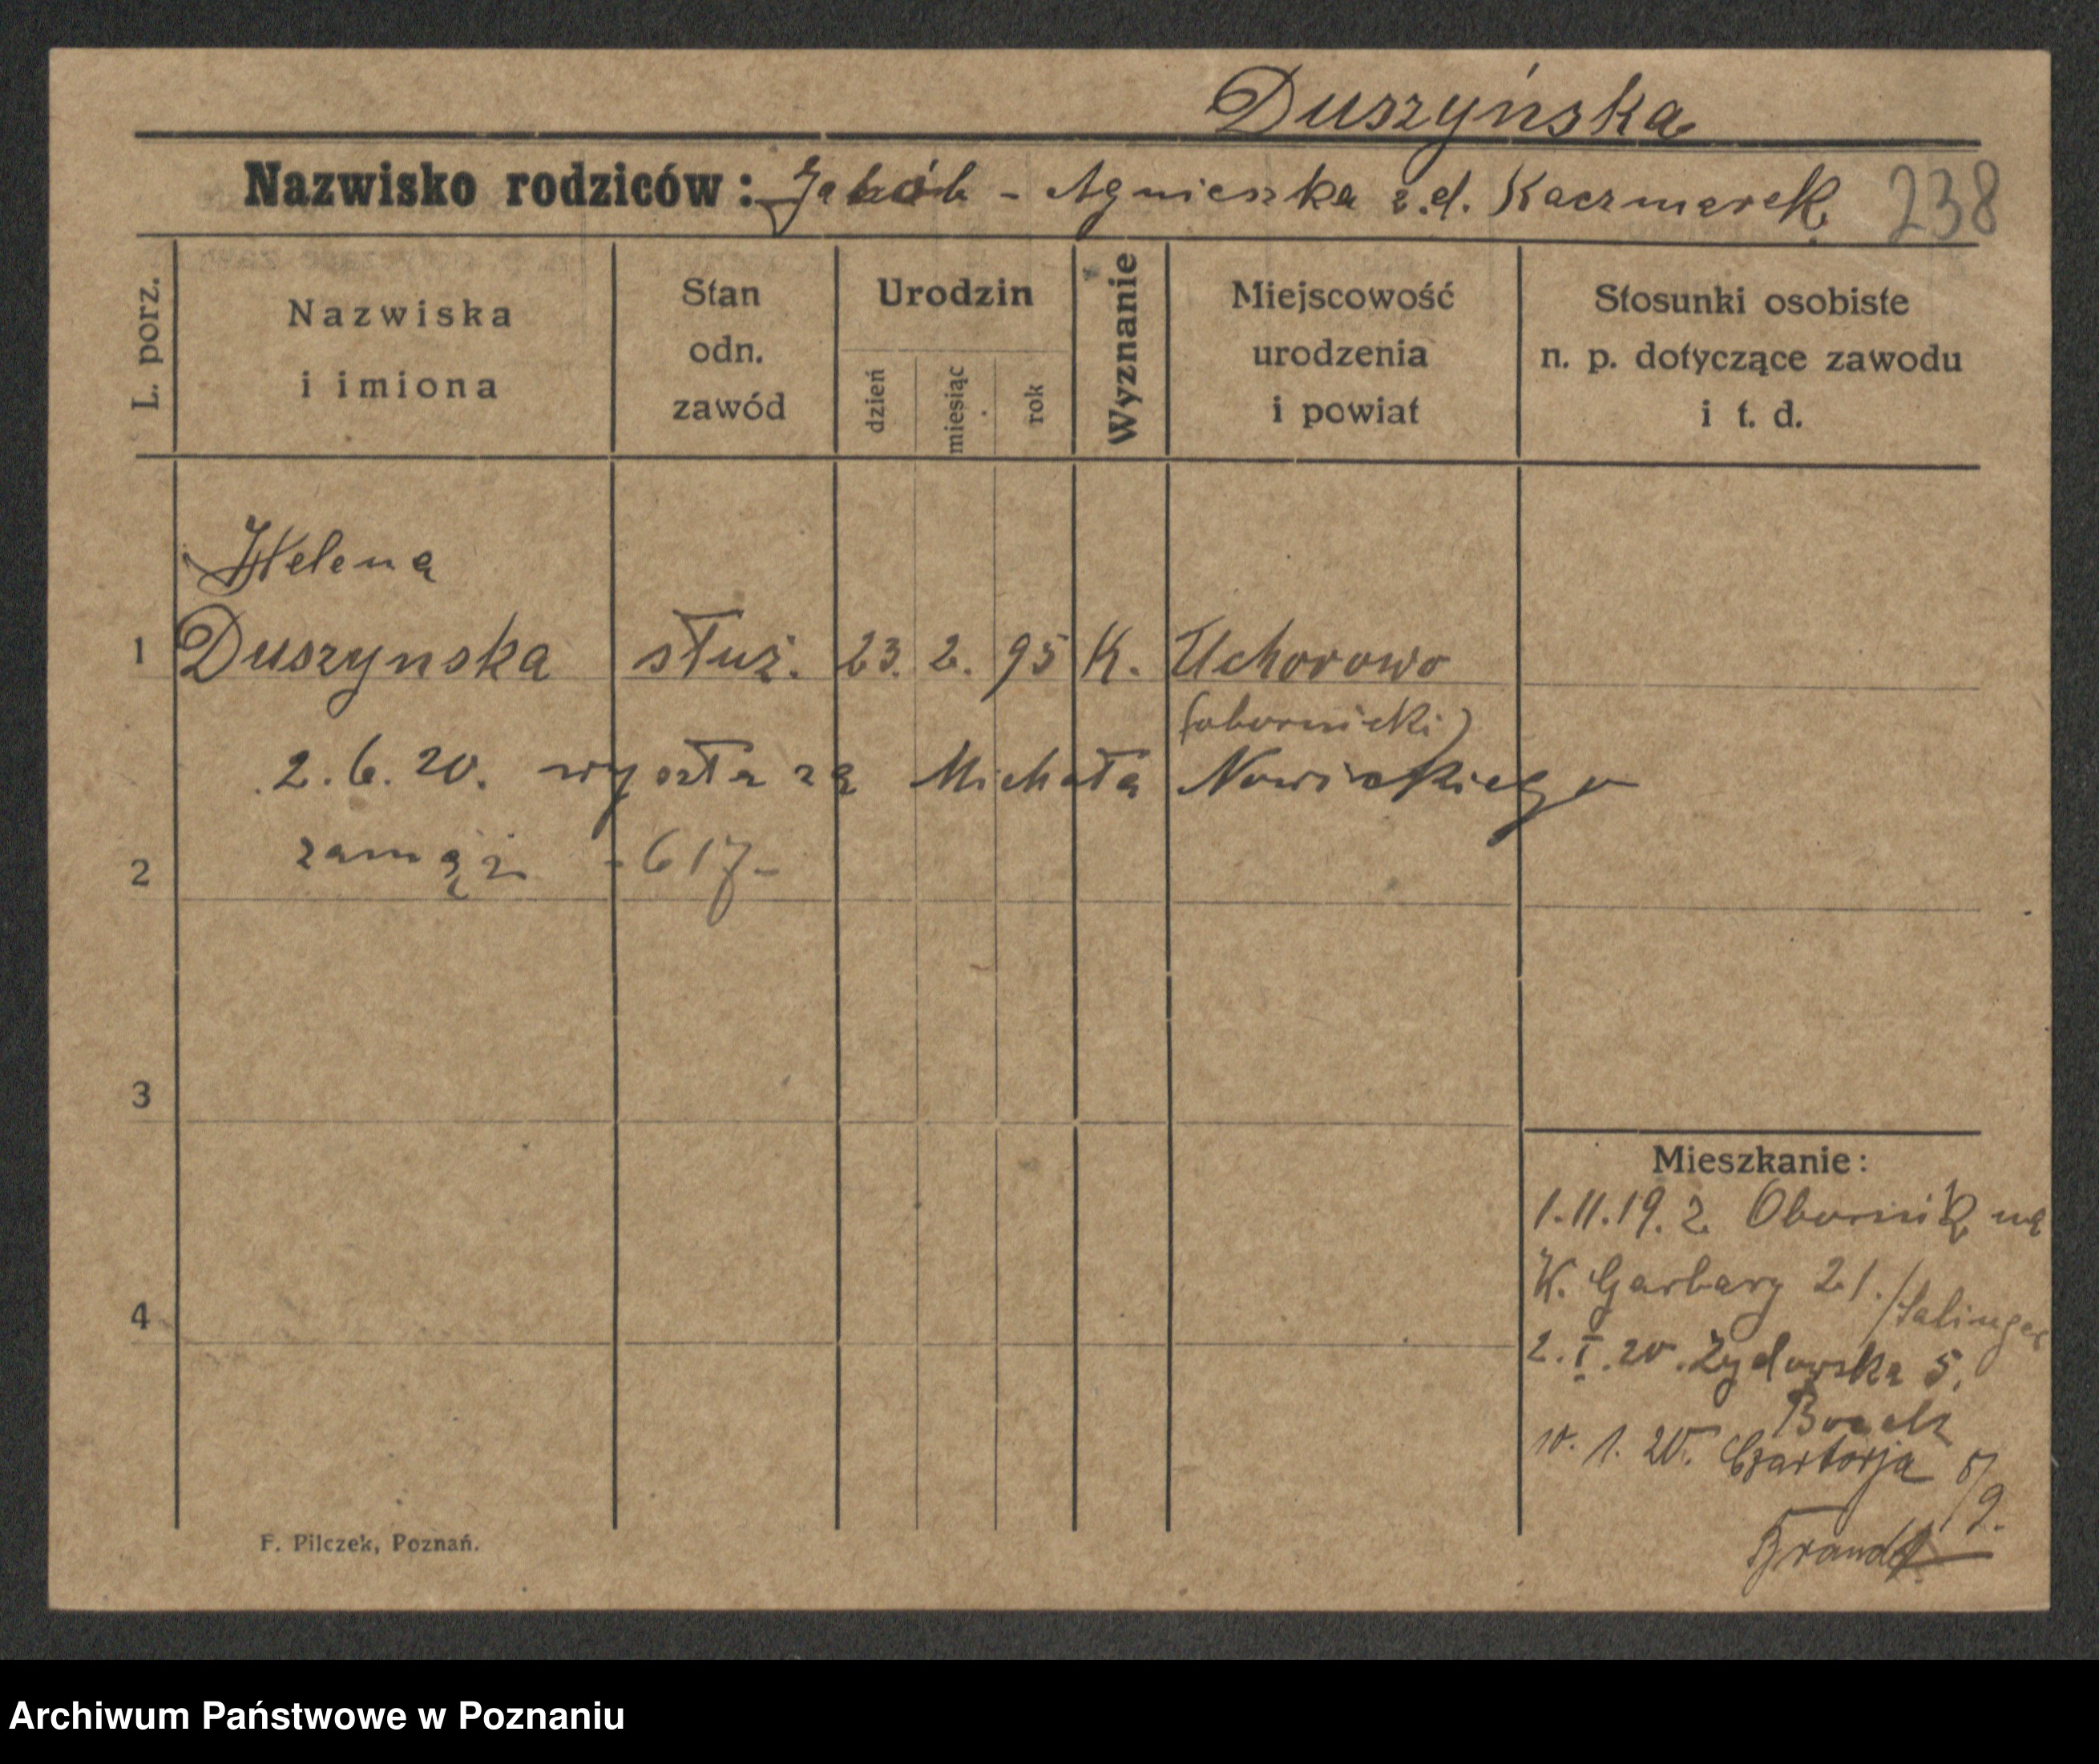 Duszyńska
Nazwisko rodziców: Jakób - Agnieszka z.d. Kaczmarek 238
L. porz.
Nazwiska
i imiona
Stan
odn.
zawód
Urodzin
dzień
miesiąc
rok
Wyznanie
Miejscowość
urodzenia
i powiat
Stosunki osobiste
n. p. dotyczące zawodu
i t. d.
Helena
1 Duszynska służ. 23. 2. 95 K. Uchorowo
(obornicki)
2. 6. 20. wyszła za Michała Nowickiego
2 zamąż - 617 -
3
4
Mieszkanie:
1.11.19. z Obornik na
W. Garbary 21. /Salinger
2. I. 20. Żydowska 5.
10. 1. 20. Czartorja 5/9.
Brandt
F. Pilczek, Poznań.
Archiwum Państwowe w Poznaniu